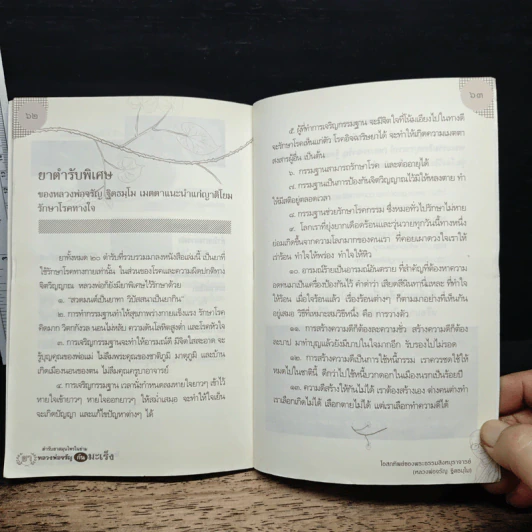 ๖๒
ยาตำรับพิเศษ
ของหลวงพ่อจรัญ ฐิตธมฺโม เมตตาแนะนำแก่ญาติโยม
รักษาโรคทางใจ
ยาทั้งหมด ๒๐ ตำรับที่รวบรวมมาลงหนังสือเล่มนี้ เป็นยาที่
ใช้รักษาโรคทางกายเท่านั้น ในส่วนของโรคและความผิดปกติทาง
จิตวิญญาณ หลวงพ่อก็ยังมียาพิเศษไว้รักษาด้วย
๑. "สวดมนต์เป็นยาทา วิปัสสนาเป็นยากิน"
๒. การทำกรรมฐานทำให้สุขภาพร่างกายแข็งแรง รักษาโรค
คิดมาก วิตกกังวล นอนไม่หลับ ความดันโลหิตสูงต่ำ และโรคหัวใจ
๓. การเจริญกรรมฐานจะทำให้อารมณ์ดี มีจิตใสสะอาด จะ
รู้บุญคุณของพ่อแม่ ไม่ลืมพระคุณของชาติภูมิ มาตุภูมิ และบ้าน
เกิดเมืองนอนของตน ไม่ลืมคุณครูบาอาจารย์
๔. การเจริญกรรมฐาน เวลานั่งกำหนดลมหายใจยาวๆ เข้าไว้
หายใจเข้ายาวๆ หายใจออกยาวๆ ให้สม่ำเสมอ จะทำให้ใจเย็น
จะเกิดปัญญา และแก้ไขปัญหาต่างๆ ได้
ตำรับยาสมุนไพรโบราณ
หลวงพ่อจรัญ กับ มะเร็ง
๖๓
๕. ผู้ที่ทำการเจริญกรรมฐาน จะมีจิตใจที่โน้มเอียงไปในทางดี
จะรักษาโรคเห็นแก่ตัว โรคอิจฉาริษยาได้ จะทำให้เกิดความเมตตา
สงสารผู้อื่น เป็นต้น
๖. กรรมฐานสามารถรักษาโรค และต่ออายุได้
๗. กรรมฐานเป็นการป้องกันจิตวิญญาณไว้มิให้หลงตาย ทำ
ให้มีสติอยู่ตลอดเวลา
๘. กรรมฐานช่วยรักษาโรคกรรม ซึ่งหมอทั่วไปรักษาไม่หาย
๙. โลกเราที่ยุ่งยากเดือดร้อนและวุ่นวายทุกวันนี้ทางหนึ่ง
ย่อมเกิดขึ้นจากความโลภมากของคนเรา ที่คอยเผาดวงใจเราให้
เร่าร้อน ทำใจให้พร่อง ทำใจให้หิว
๑๐. อารมณ์ร้ายเป็นอารมณ์อันตราย ที่สำคัญที่ต้องหาความ
อดทนมาเป็นเครื่องป้องกันไว้ คำด่าว่า เสียดสีนินทานี้แหละ ที่ทำ
ให้ร้อน เมื่อใจร้อนแล้ว เรื่องร้อนต่างๆ ก็ตามมาอย่างที่เห็นกัน
อยู่เสมอ วิธีที่เหมาะสมวิธีหนึ่ง คือ การวางตัว
๑๑. การสร้างความดีก็ต้องละความชั่ว สร้างความดีก็ต้อง
ละบาป มาทำบุญแล้วยังมีบาปในใจมากอีก รับรองไปไม่รอด
๑๒. การสร้างความดีเป็นการใช้หนี้กรรม เราควรชดใช้ให้
หมดไปในชาตินี้ ดีกว่าไปใช้หนี้บวกดอกในเมืองนรกเป็นร้อยปี
๑๓. ความดีสร้างให้กันไม่ได้ เราต้องสร้างเอง ต่างคนต่างทำ
เราเลือกเกิดไม่ได้ เลือกตายไม่ได้ แต่เราเลือกทำความดีได้
โอสถทิพย์ของพระธรรมสิงหบุราจารย์
(หลวงพ่อจรัญ ฐิตธมฺโม)